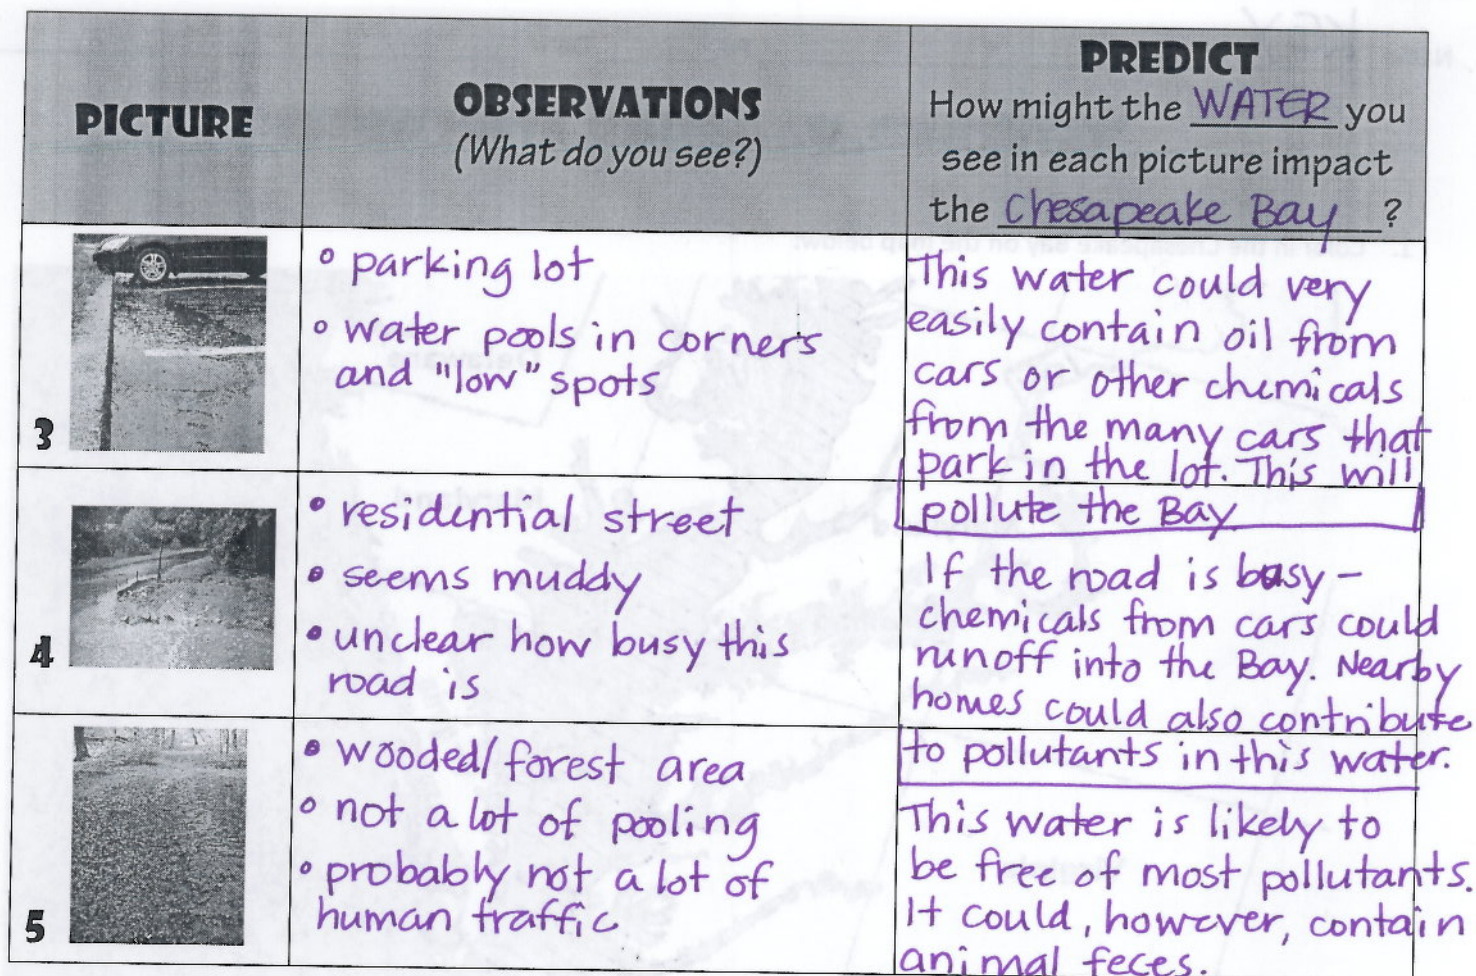 PICTURE
OBSERVATIONS
(What do you see?)
PREDICT
How might the WATER you
see in each picture impact
the Chesapeake Bay ?
3
° parking lot
° water pools in corners
and "low" spots
This water could very
easily contain oil from
cars or other chemicals
from the many cars that
park in the lot. This will
pollute the Bay
4
• residential street
• seems muddy
• unclear how busy this
road is
If the road is busy –
chemicals from cars could
runoff into the Bay. Nearby
homes could also contribute
to pollutants in this water.
5
• wooded/forest area
° not a lot of pooling
° probably not a lot of
human traffic
This water is likely to
be free of most pollutants.
It could, however, contain
animal feces.